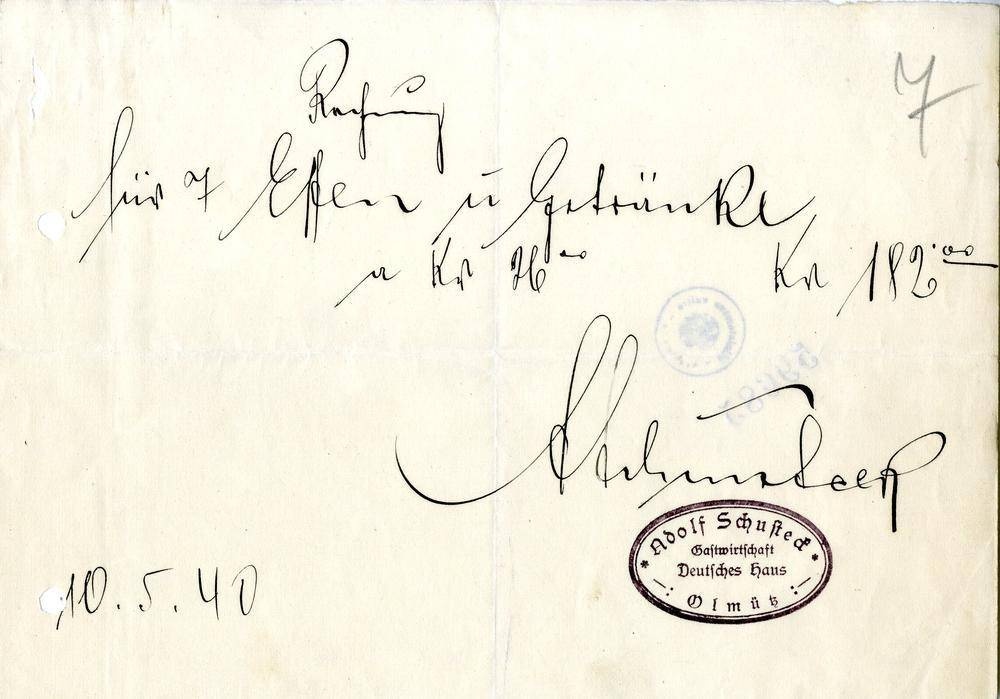 7
Rechnung
für 7 Essen u Getränke
a Kr 26.00 Kr 182.00
Adolf Schusteck
Gastwirtschaft
Deutsches Haus
Olmütz
10.5.40